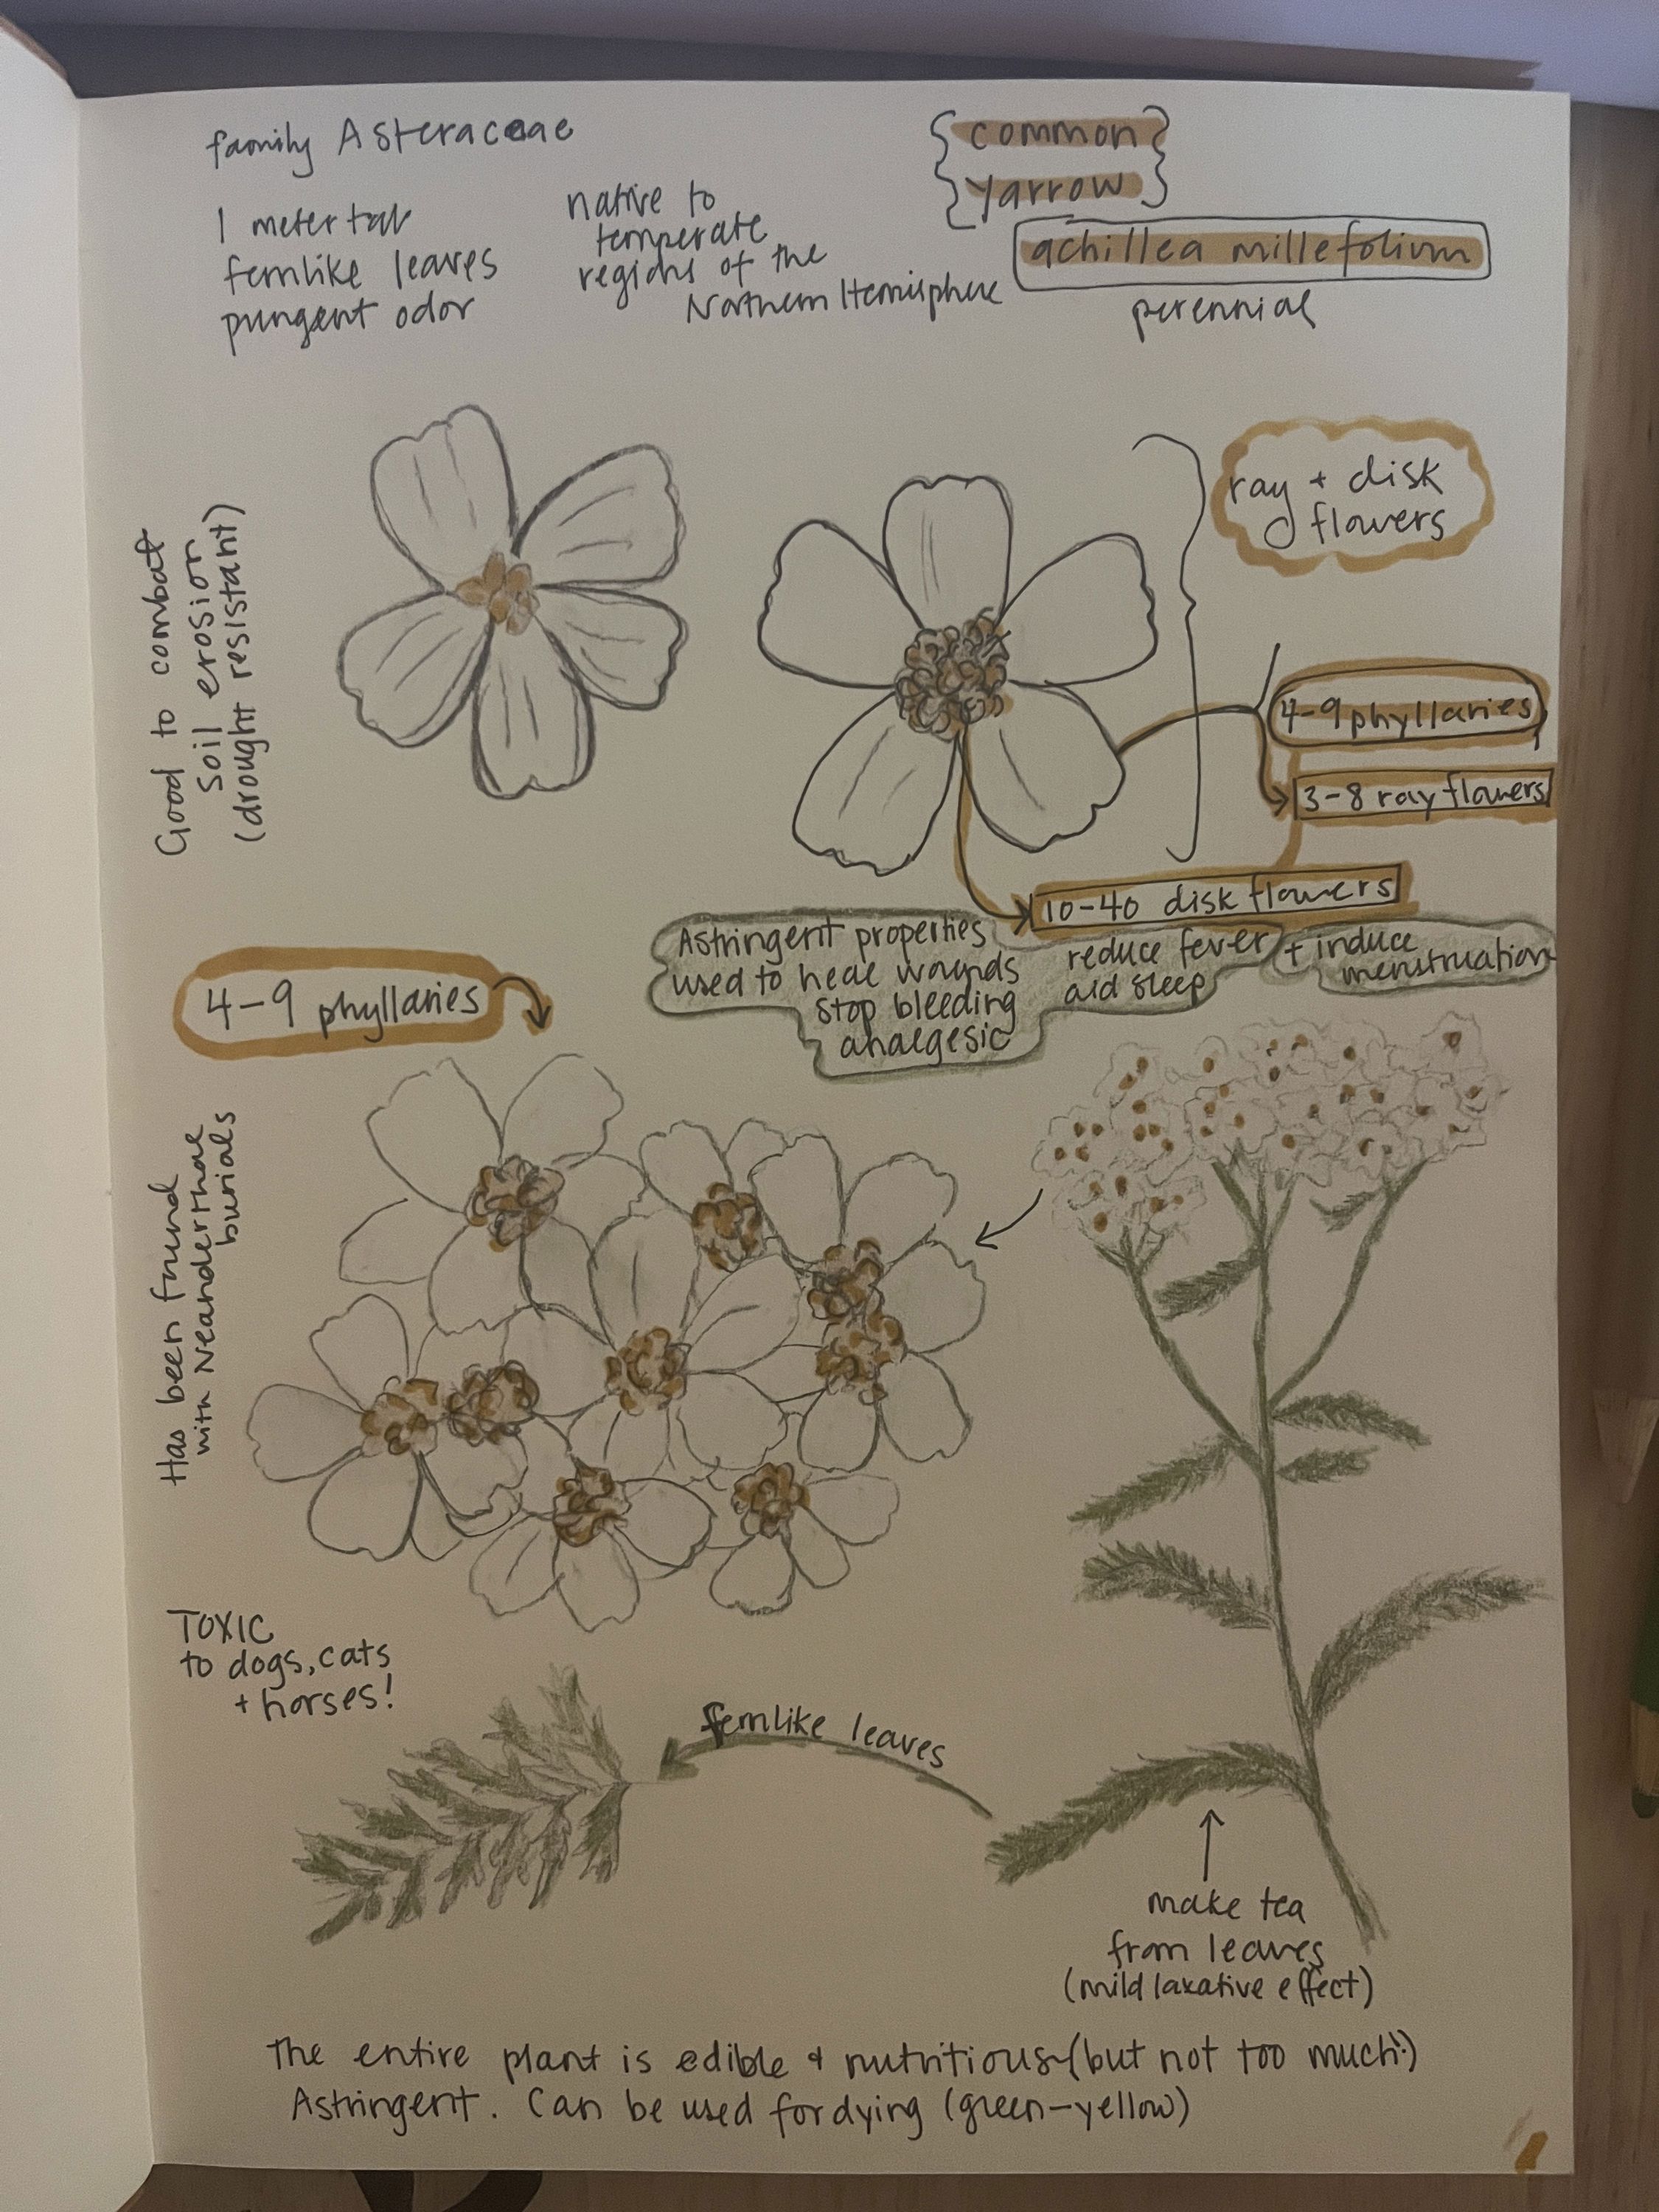 family Asteraceae
1 meter tall
fernlike leaves
pungent odor
native to
temperate
regions of the
Northern Hemisphere
common
yarrow
achillea millefolium
perennial
ray + disk
flowers
Good to combat
soil erosion
(drought resistant)
4-9 phyllaries
3-8 ray flowers
10-40 disk flowers
Astringent properties
used to heal wounds
stop bleeding
analgesic
reduce fever
aid sleep
+ induce
menstruation
4-9 phyllaries
Has been found
with Neanderthal
burials
TOXIC
to dogs, cats
+ horses!
fernlike leaves
make tea
from leaves
(mild laxative effect)
The entire plant is edible & nutritious (but not too much!)
Astringent. Can be used for dying (green-yellow)